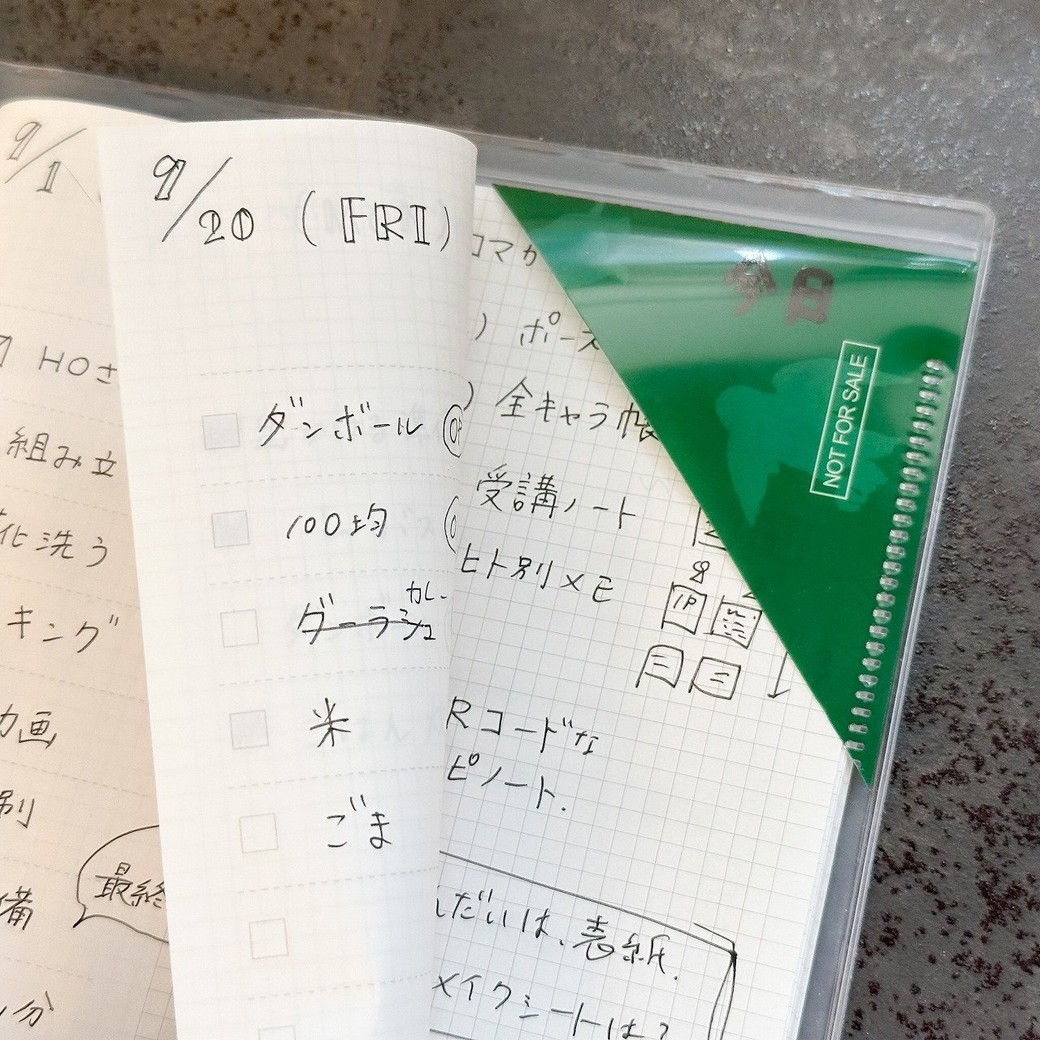 9/1
HOさ
組み立
化洗う
キング
力画
別
最終
備
分
9/20 (FRI)
ダンボール
100均
カレー
ダーラシュ
米
ごま
コマか
ポース
全キャラ帳
受講ノート
ヒト別メモ
Rコードな
ピノート.
だいは、表紙.
メイクシートは?
今日
NOT FOR SALE